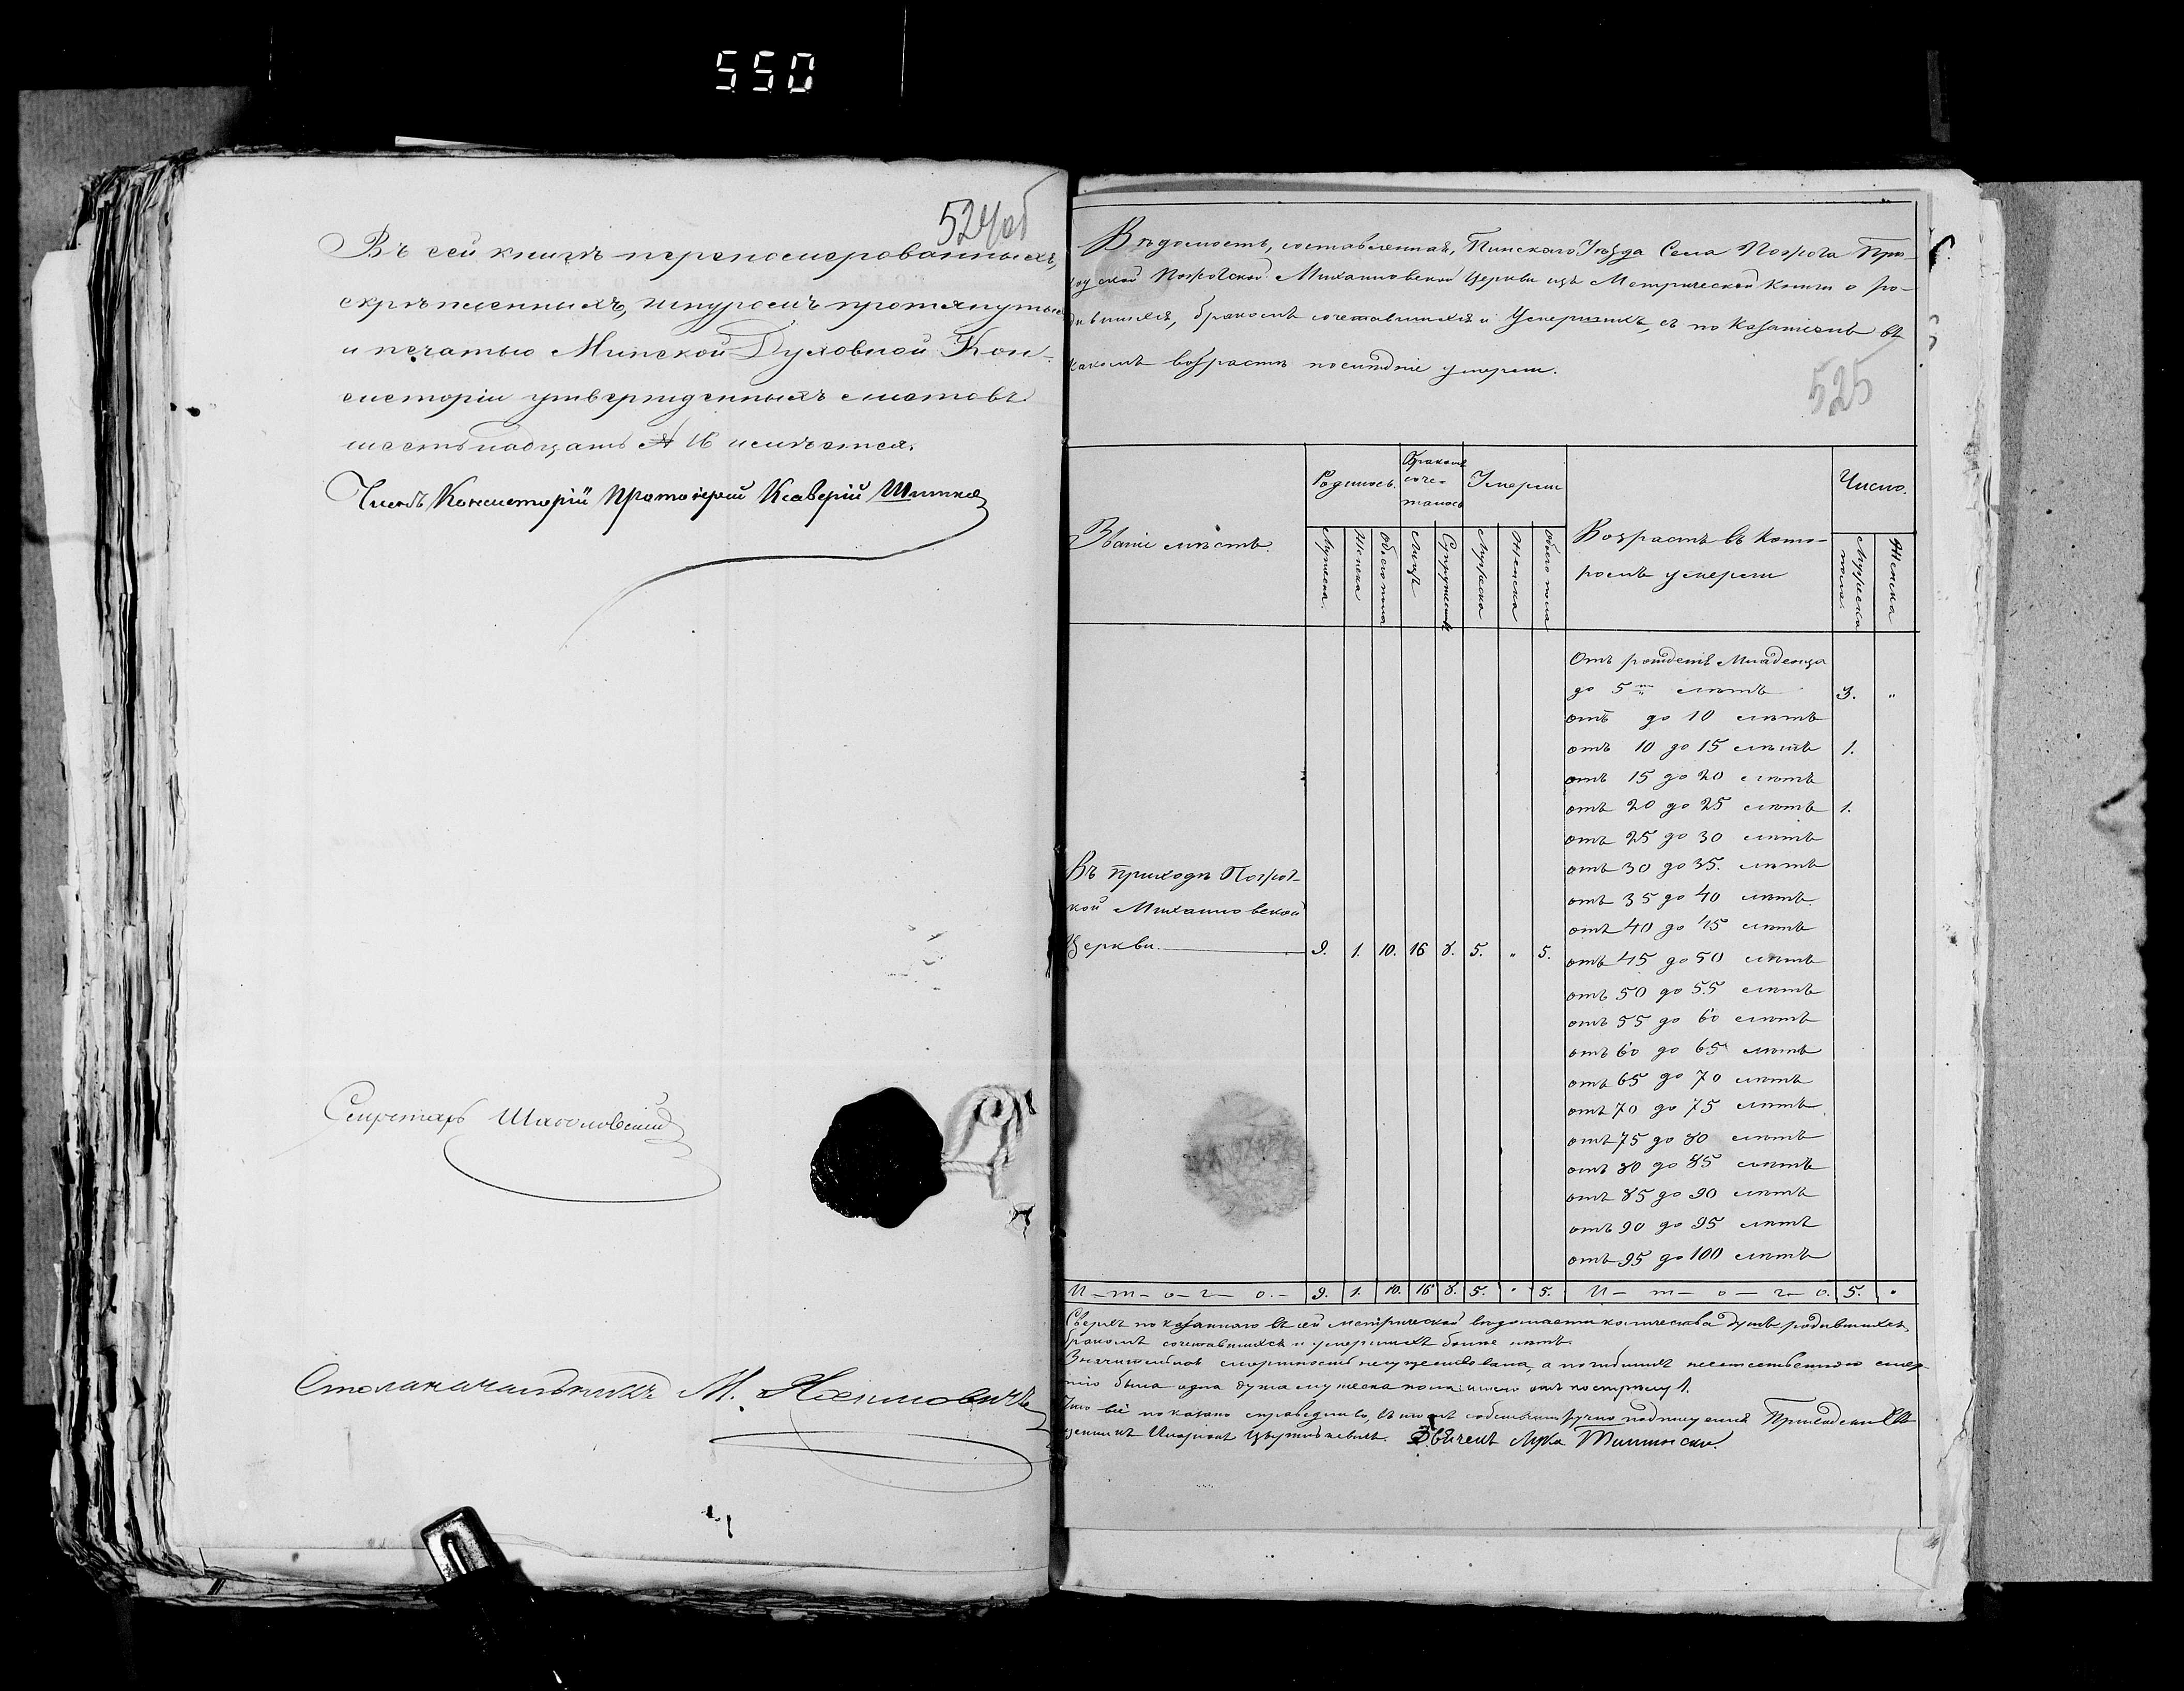 550
524об
Въ сей книгѣ перепомерованныхъ,
скрѣпленныхъ, шнуромъ протянутых
и печатью Минской Духовной Кон-
систоріи утвержденныхъ листовъ
шестьнадцать № 16 имѣется.
Членъ Консисторіи Протоіерей Ксаверій
Секретарь
Столоначальникъ М.
Вѣдомость, составленная, Пинскаго Уѣзда Села При-
ходской Михайловской Церкви изъ Метрической Книги о ро-
дившихся, бракомъ сочетавшихся и Умершихъ, съ показаніемъ въ
какомъ возрастѣ послѣдніе умерли.
525
Званіе мѣстъ.
Родилось.
Бракомъ
соче-
талось
Умерли
Возрастъ въ кото-
ромъ умерли
Число.
Мужеска
Женска
Обоего пола
Лицъ
Супружествъ
Мужеска
Женска
Обоего пола
Мужеска
пола.
Женска
Отъ рожденія Младенца
до 5ти лѣтъ 3. "
отъ до 10 лѣтъ
отъ 10 до 15 лѣтъ 1.
отъ 15 до 20 лѣтъ
отъ 20 до 25 лѣтъ 1.
отъ 25 до 30 лѣтъ
отъ 30 до 35. лѣтъ
отъ 35 до 40 лѣтъ
отъ 40 до 45 лѣтъ
отъ 45 до 50 лѣтъ
отъ 50 до 55 лѣтъ
отъ 55 до 60 лѣтъ
отъ 60 до 65 лѣтъ
отъ 65 до 70 лѣтъ
отъ 70 до 75 лѣтъ
отъ 75 до 80 лѣтъ
отъ 80 до 85 лѣтъ
отъ 85 до 90 лѣтъ
отъ 90 до 95 лѣтъ
отъ 95 до 100 лѣтъ
Въ приходѣ
кой Михайловской
Церкви. 9. 1. 10. 16 8. 5. " 5.
И-т-о-г-о.- 9. 1. 10. 16 8. 5. " 5. И-т-о-г-о. 5. "
Сверхъ показаннаго въ сей метрической вѣдомости количества душъ родившихся,
бракомъ сочетавшихся и умершихъ болѣе нѣтъ.
Значительной смертности не существовало, а погибшихъ неестественною смер-
тію была одна душа мужеска пола
Что всё показано справедливо, въ томъ собственноручно подписуемся Приходскій Свя-
щенникъ Дьячекъ Лука